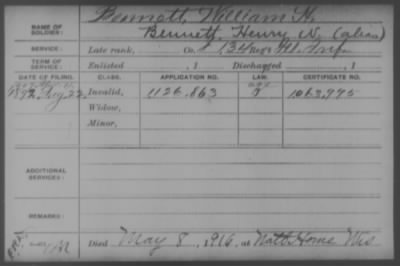 Bennett, William H.
NAME OF SOLDIER: Bennett, Henry N. (alias)
SERVICE: Late rank, Co. F 134 Reg't Ill. Inf.
TERM OF SERVICE: Enlisted , 1 Discharged , 1
DATE OF FILING. CLASS. APPLICATION NO. LAW. CERTIFICATE NO.
1892, Aug 22 Invalid, 1126.863 1063.995
Widow,
Minor,
ADDITIONAL SERVICES:
REMARKS:
Died May 8, 1916, at Natl Home Wis